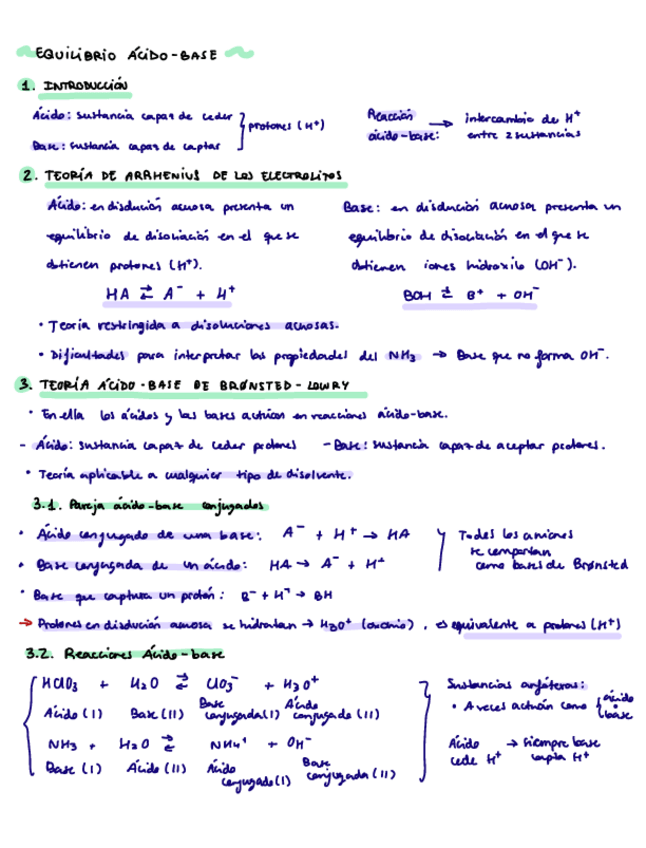 EQUILIBRIO ÁCIDO-BASE
1. INTRODUCCIÓN
Ácido: sustancia capaz de ceder
Base: sustancia capaz de captar
protones (H⁺)
Reacción ácido-base: → intercambio de H⁺ entre 2 sustancias
2. TEORÍA DE ARRHENIUS DE LOS ELECTROLITOS
Ácido: en disolución acuosa presenta un
equilibrio de disociación en el que se
obtienen protones (H⁺).
HA ⇄ A⁻ + H⁺
Base: en disolución acuosa presenta un
equilibrio de disociación en el que se
obtienen iones hidroxilo (OH⁻).
BOH ⇄ B⁺ + OH⁻
• Teoría restringida a disoluciones acuosas.
• Dificultades para interpretar las propiedades del NH₃ → Base que no forma OH⁻.
3. TEORÍA ÁCIDO-BASE DE BRØNSTED-LOWRY
• En ella los ácidos y las bases actúan en reacciones ácido-base.
- Ácido: sustancia capaz de ceder protones - Base: sustancia capaz de aceptar protones.
• Teoría aplicable a cualquier tipo de disolvente.
3.1. Pareja ácido-base conjugados
• Ácido conjugado de una base: A⁻ + H⁺ → HA
• Base conjugada de un ácido: HA → A⁻ + H⁺
Todos los aniones
se comportan
como bases de Brønsted
• Base que captura un protón: B⁻ + H⁺ → BH
→ Protones en disolución acuosa se hidratan → H₃O⁺ (oxonio). ⇒ equivalente a protones (H⁺)
3.2. Reacciones Ácido-base
HClO₃ + H₂O ⇄ ClO₃⁻ + H₃O⁺
Ácido (I) Base (II) Base conjugada (I) Ácido conjugado (II)
NH₃ + H₂O ⇄ NH₄⁺ + OH⁻
Base (I) Ácido (II) Ácido conjugado (I) Base conjugada (II)
Sustancias anfóteras:
• A veces actúan como ácido
base
Ácido → siempre base
cede H⁺ capta H⁺